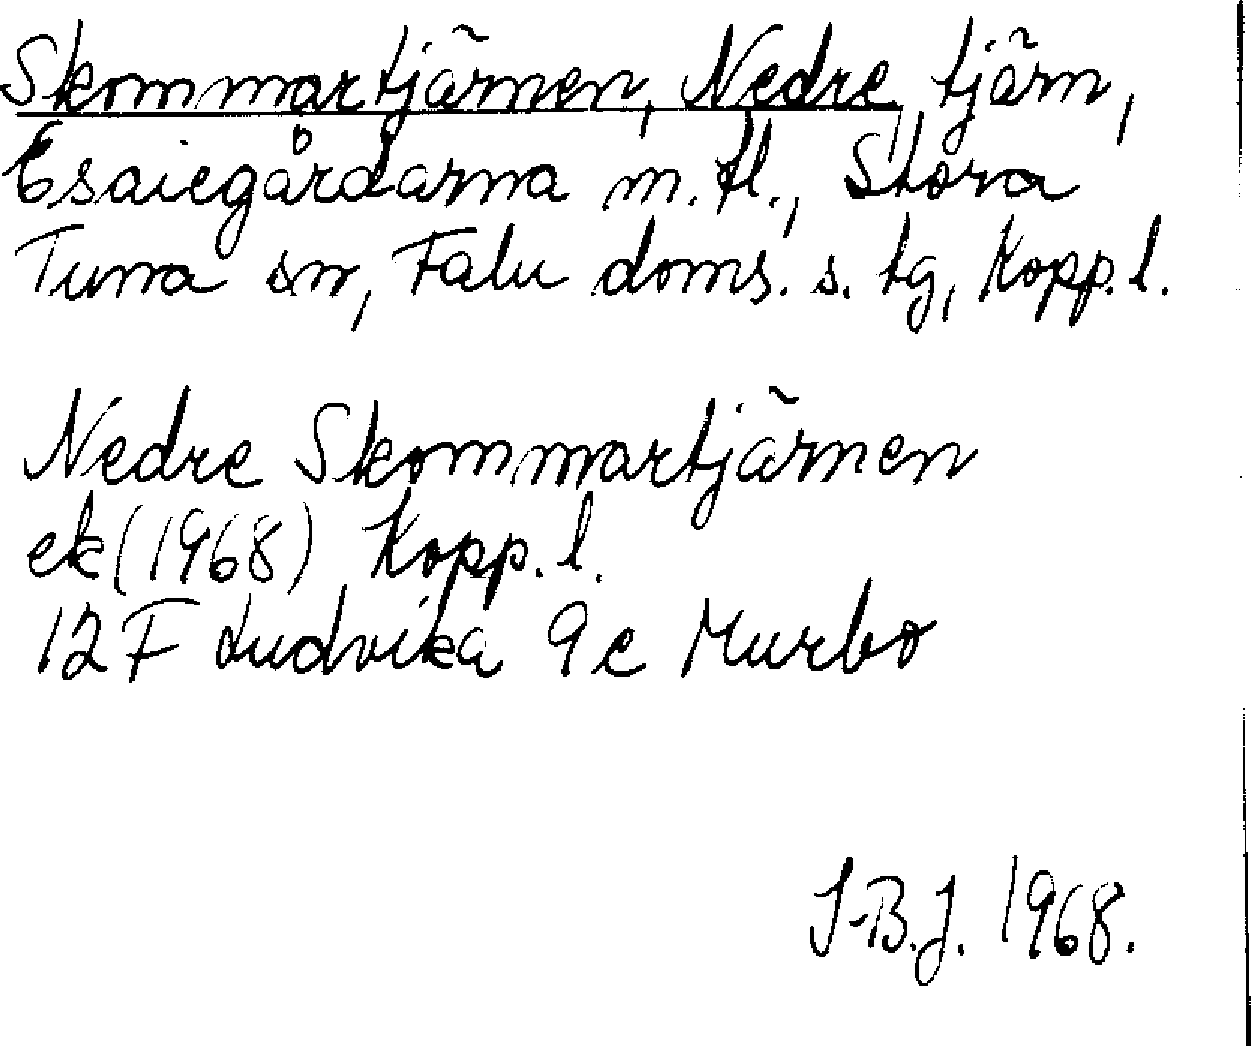 Skommartjärnen, Nedre, tjärn,
Esaiegårdarna m.fl., Stora
Tuna sn, Falu doms. s. tg, Kopp. l.
Nedre Skommartjärnen
ek (1968) Kopp. l.
12 F Ludvika 9 c Murbo
I-B.J. 1968.